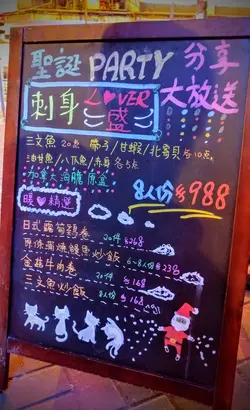 聖誕 PARTY 分享
大放送
刺身 L♥VER
盛
三文魚 20点 帶子/甘蝦/北寄貝 各10点
油甘魚/八爪魚/赤身 各5点
加拿大海膽原盒
8人份 $988
暖♥精選
日式 葡萄雞卷 20件 $268
蒲燒鰻魚炒飯 6-8人份 $238
金菇牛肉卷 20件 $168
三文魚炒飯 8人份 $168